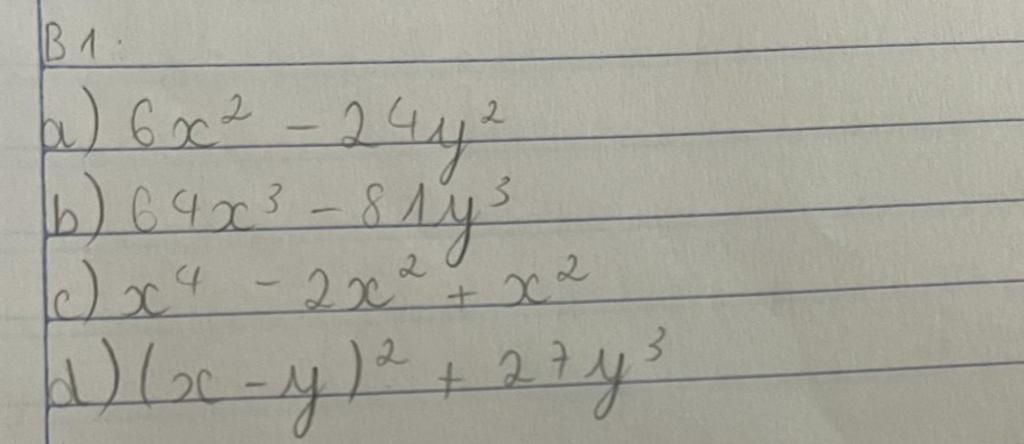 B1.
a) 6x² - 24y²
b) 64x³ - 81y³
c) x⁴ - 2x² + x²
d) (x - y)² + 27y³